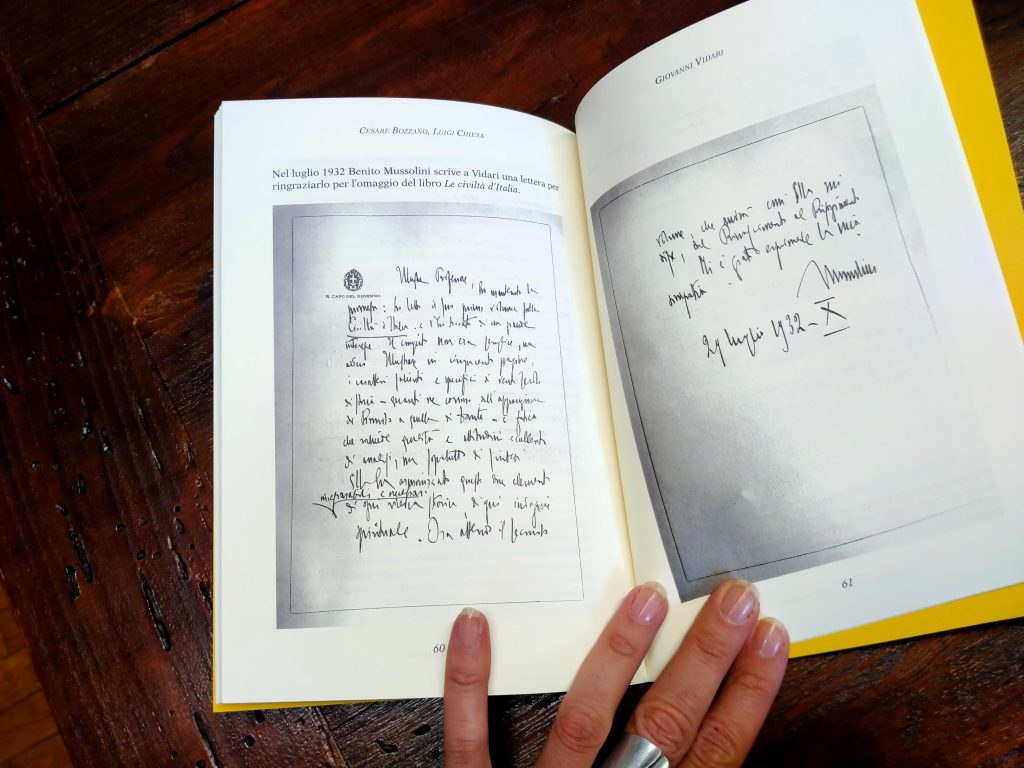 CESARE BOZZANO, LUIGI CHIESA
Nel luglio 1932 Benito Mussolini scrive a Vidari una lettera per
ringraziarlo per l'omaggio del libro Le civiltà d'Italia.
IL CAPO DEL GOVERNO
Illustre Professore, ho mantenuto la
promessa: ho letto il suo primo volume sulla
Civiltà d'Italia e l'ho trovato di un grande
interesse. Il compito non era semplice, ma
arduo. Illustrare in cinquecento pagine,
i caratteri salienti e specifici di venti secoli
di storia – quanti ne corrono dall'apparizione
di Romolo a quella di Dante – è fatica
che richiede qualità e attitudini eccellenti
di analisi, ma soprattutto di sintesi.
Ella ha armonizzato questi due elementi
inseparabili e necessari
di ogni vera storia di ogni
spirituale. Ora attendo il secondo
60
GIOVANNI VIDARI
volume, che giunga come Ella mi
dice, dal Rinascimento al Risorgimento
Mi è grato esprimerle la mia
simpatia.
Mussolini
29 luglio 1932 – X
61